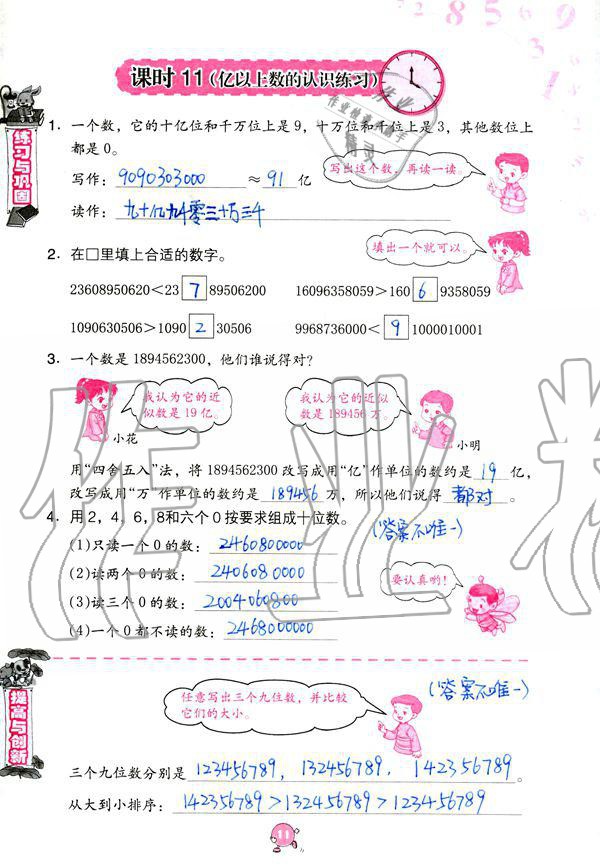 2 8 5 6 9
3
1
课时 11（亿以上数的认识练习）
练习与巩固
1. 一个数，它的十亿位和千万位上是 9，十万位和千位上是 3，其他数位上
都是 0。
写出这个数，再读一读。
写作：9090303000 ≈ 91 亿
读作：九十亿九千零三十万三千
2. 在□里填上合适的数字。
填出一个就可以。
23608950620＜23 7 89506200 16096358059＞160 6 9358059
1090630506＞1090 2 30506 9968736000＜ 9 1000010001
3. 一个数是 1894562300，他们谁说得对？
我认为它的近
似数是 19 亿。
小花
我认为它的近似
数是 189456 万。
小明
用“四舍五入”法，将 1894562300 改写成用“亿”作单位的数约是 19 亿，
改写成用“万”作单位的数约是 189456 万，所以他们说得 都对 。
4. 用 2，4，6，8和六个 0 按要求组成十位数。
（答案不唯一）
(1)只读一个 0 的数：2460800000
(2)读两个 0 的数：2406080000
(3)读三个 0 的数：2004060800
(4)一个 0 都不读的数：2468000000
要认真哟！
提高与创新
任意写出三个九位数，并比较
它们的大小。
（答案不唯一）
三个九位数分别是 123456789，133456789，142356789。
从大到小排序：1423356789＞133456789＞123456789
11